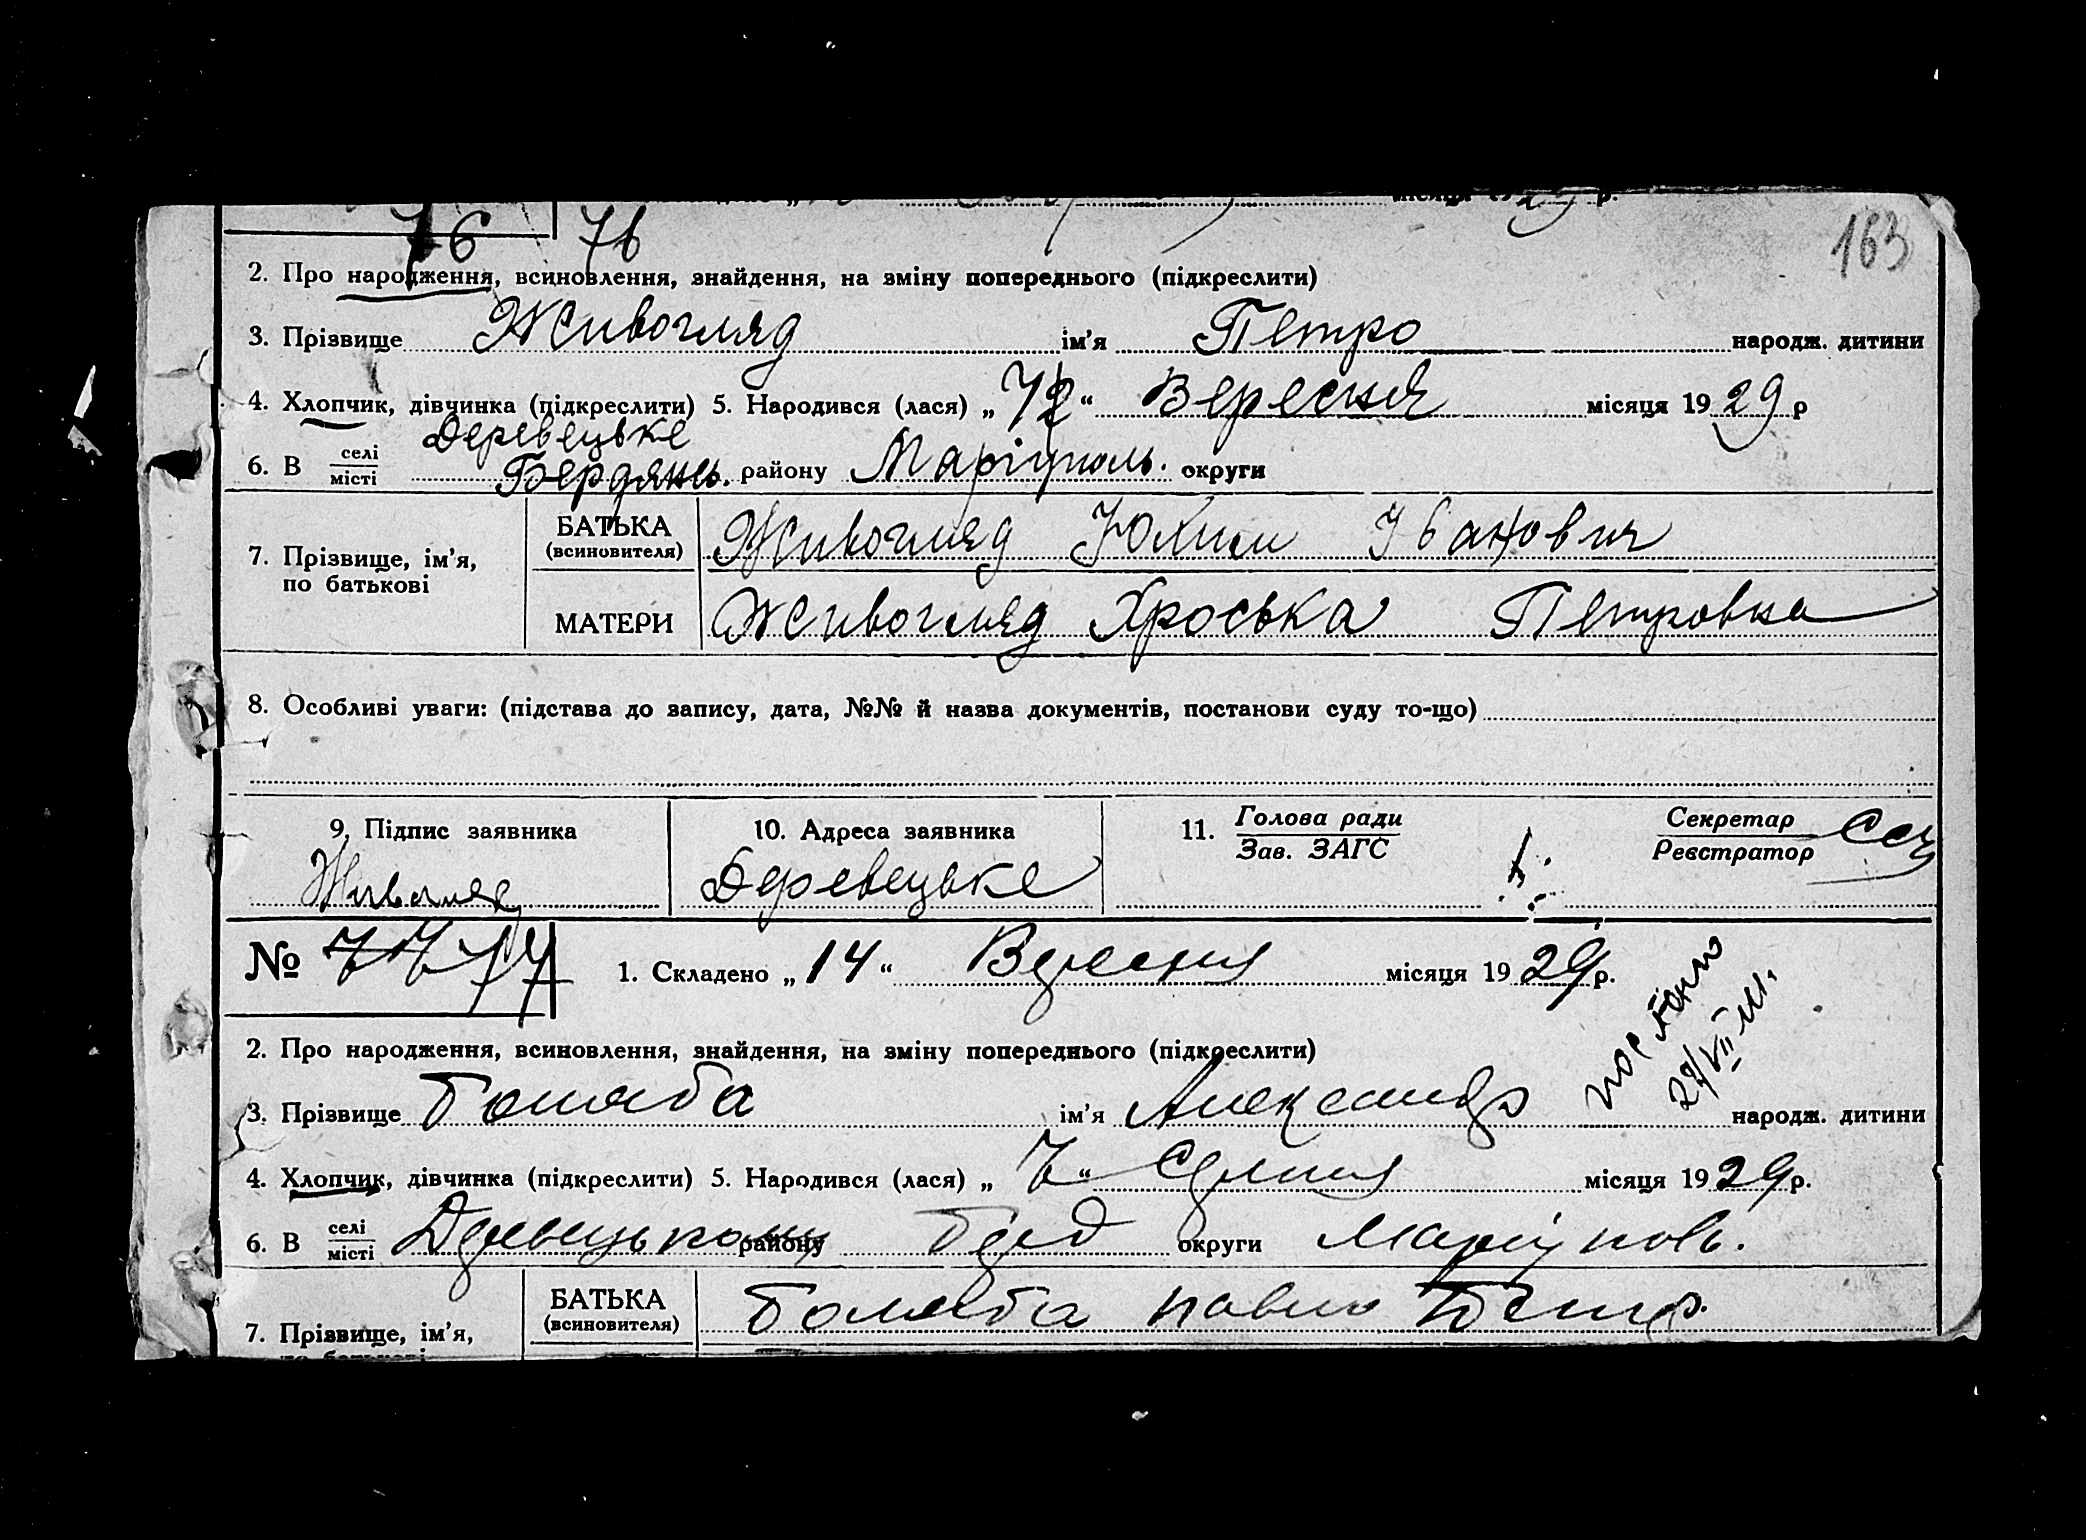 76 76
163
2. Про народження, всиновлення, знайдення, на зміну попереднього (підкреслити)
3. Прізвище Живогляд ім'я Петро народж. дитини
4. Хлопчик, дівчинка (підкреслити) 5. Народився (лася) „ “ Вересня місяця 1929 р
Деревецьке
6. В селі/місті Бердянсь. району Маріуполь. округи
7. Прізвище, ім'я, по батькові
БАТЬКА (всиновителя) Живогляд Юхим Іванович
МАТЕРИ Живогляд Хроська Петровна
8. Особливі уваги: (підстава до запису, дата, №№ й назва документів, постанови суду то-що)
9. Підпис заявника 10. Адреса заявника 11. Голова ради/Зав. ЗАГС Секретар/Реєстратор
Деревецьке
№ 77 77 1. Складено „14“ Вересня місяця 1929р.
2. Про народження, всиновлення, знайдення, на зміну попереднього (підкреслити)
3. Прізвище ім'я Александр народж. дитини
4. Хлопчик, дівчинка (підкреслити) 5. Народився (лася) „7“ Серпня місяця 1929р.
6. В селі/місті району Берд округи Маріуполь.
7. Прізвище, ім'я,
БАТЬКА (всиновителя) Павло
по батькові